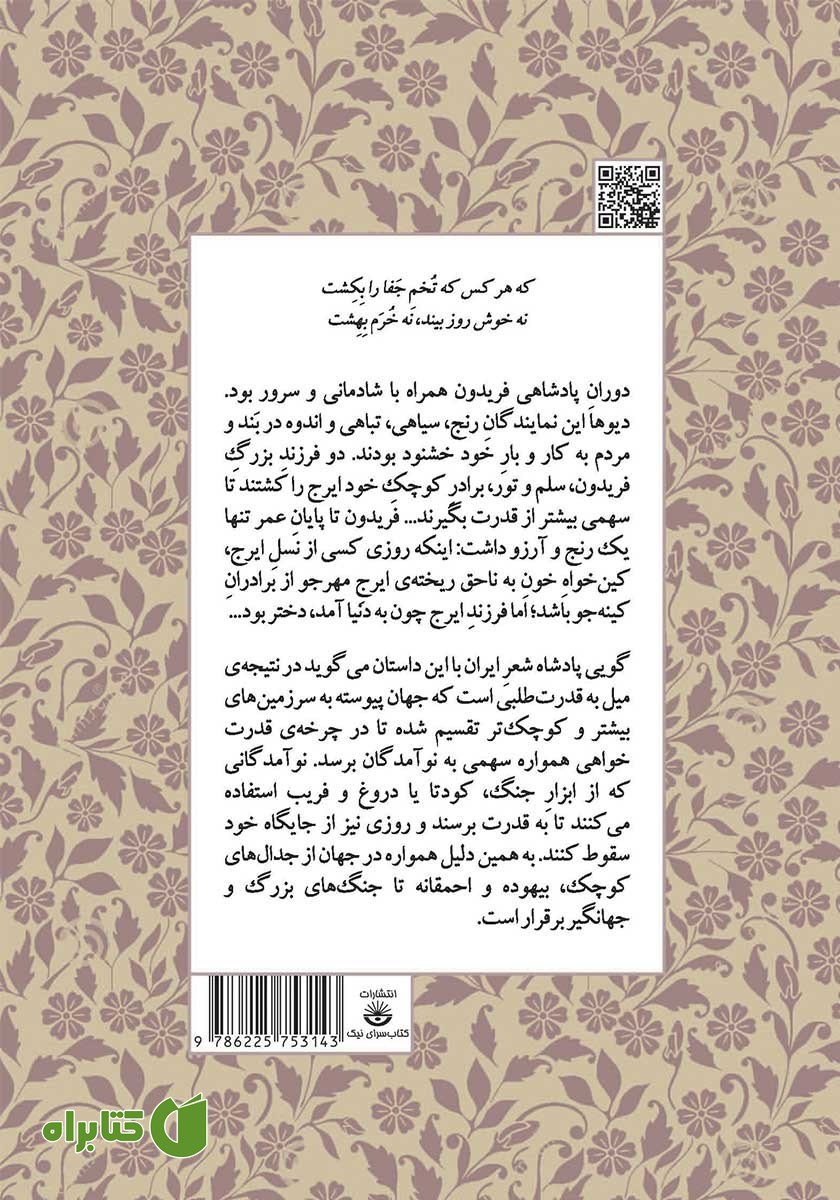 که هر کس که تُخمِ جَفا را بِکِشت
نه خوش روز بیند، نَه خُرَم بِهِشت
دورانِ پادشاهی فریدون همراه با شادمانی و سرور بود.
دیوها این نمایندگانِ رنج، سیاهی، تباهی و اندوه در بَند و
مردم به کار و بارِ خود خشنود بودند. دو فرزندِ بزرگِ
فریدون، سلم و تور، برادر کوچکِ خود ایرج را کشتند تا
سهمی بیشتر از قدرت بگیرند... فریدون تا پایانِ عمر تنها
یک رنج و آرزو داشت: اینکه روزی کسی از نسلِ ایرج،
کین‌خواهِ خونِ به ناحق ریخته‌ی ایرجِ مهرجو از برادرانِ
کینه‌جو باشد؛ اما فرزندِ ایرج چون به دنیا آمد، دختر بود...
گویی پادشاه شعرِ ایران با این داستان می‌گوید در نتیجه‌ی
میل به قدرت‌طلبی است که جهان پیوسته به سرزمین‌های
بیشتر و کوچک‌تر تقسیم شده تا در چرخه‌ی قدرت
خواهی همواره سهمی به نوآمدگان برسد. نوآمدگانی
که از ابزارِ جنگ، کودتا یا دروغ و فریب استفاده
می‌کنند تا به قدرت برسند و روزی نیز از جایگاه خود
سقوط کنند. به همین دلیل همواره در جهان از جدال‌های
کوچک، بیهوده و احمقانه تا جنگ‌های بزرگ و
جهانگیر برقرار است.
انتشارات
کتاب‌سرای نیک
9 786225 753143
کتابراه